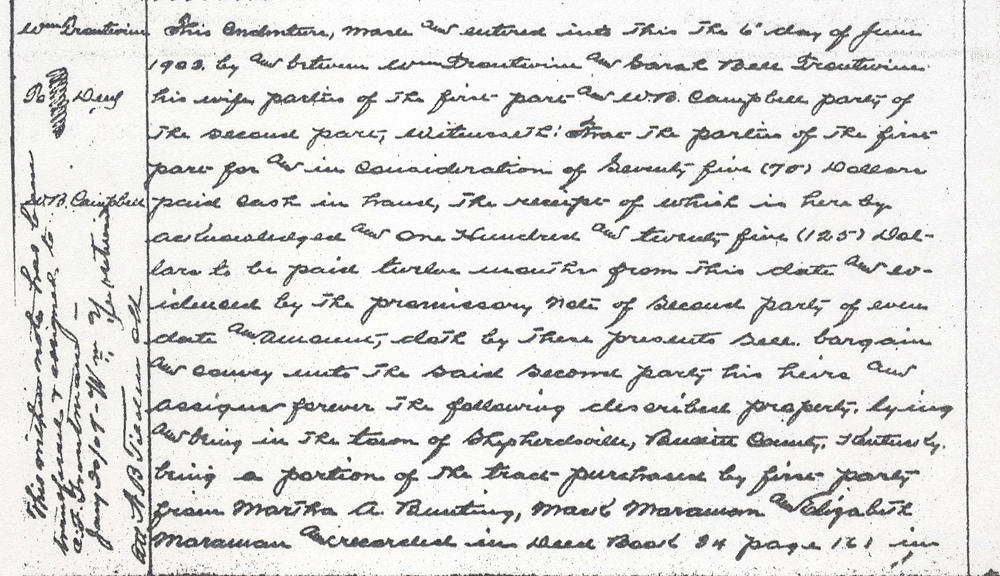 Wm Troutwine
To Deed
W.B. Campbell
This Indenture, made and entered into this the 6" day of June
1903. by and between Wm Troutwine and Sarah Bell Troutwine
his wife parties of the first part and W.B. Campbell party of
the second part, Witnesseth: That the parties of the first
part for and in consideration of Seventy five (75) Dollars
paid cash in hand, the receipt of which is here by
acknowledged and One Hundred and twenty five (125) Dol-
lars to be paid twelve months from this date and ev-
idenced by the promissory note of second party of even
date and amount, doth by these presents sell. bargain
and convey unto the said second party his heirs and
assigns forever the following described property. lying
and being in the town of Shepherdsville, Bullitt County, Kentucky.
being a portion of the tract purchased by first party
from Martha A. Bunting, Mack Maraman and Elizabeth
Maraman and recorded in Deed Book 24 page 161 in
This note has been
transferred & assigned to
C.F. Troutman
Jany 20/07 - Wm
Att A B Tilden clk